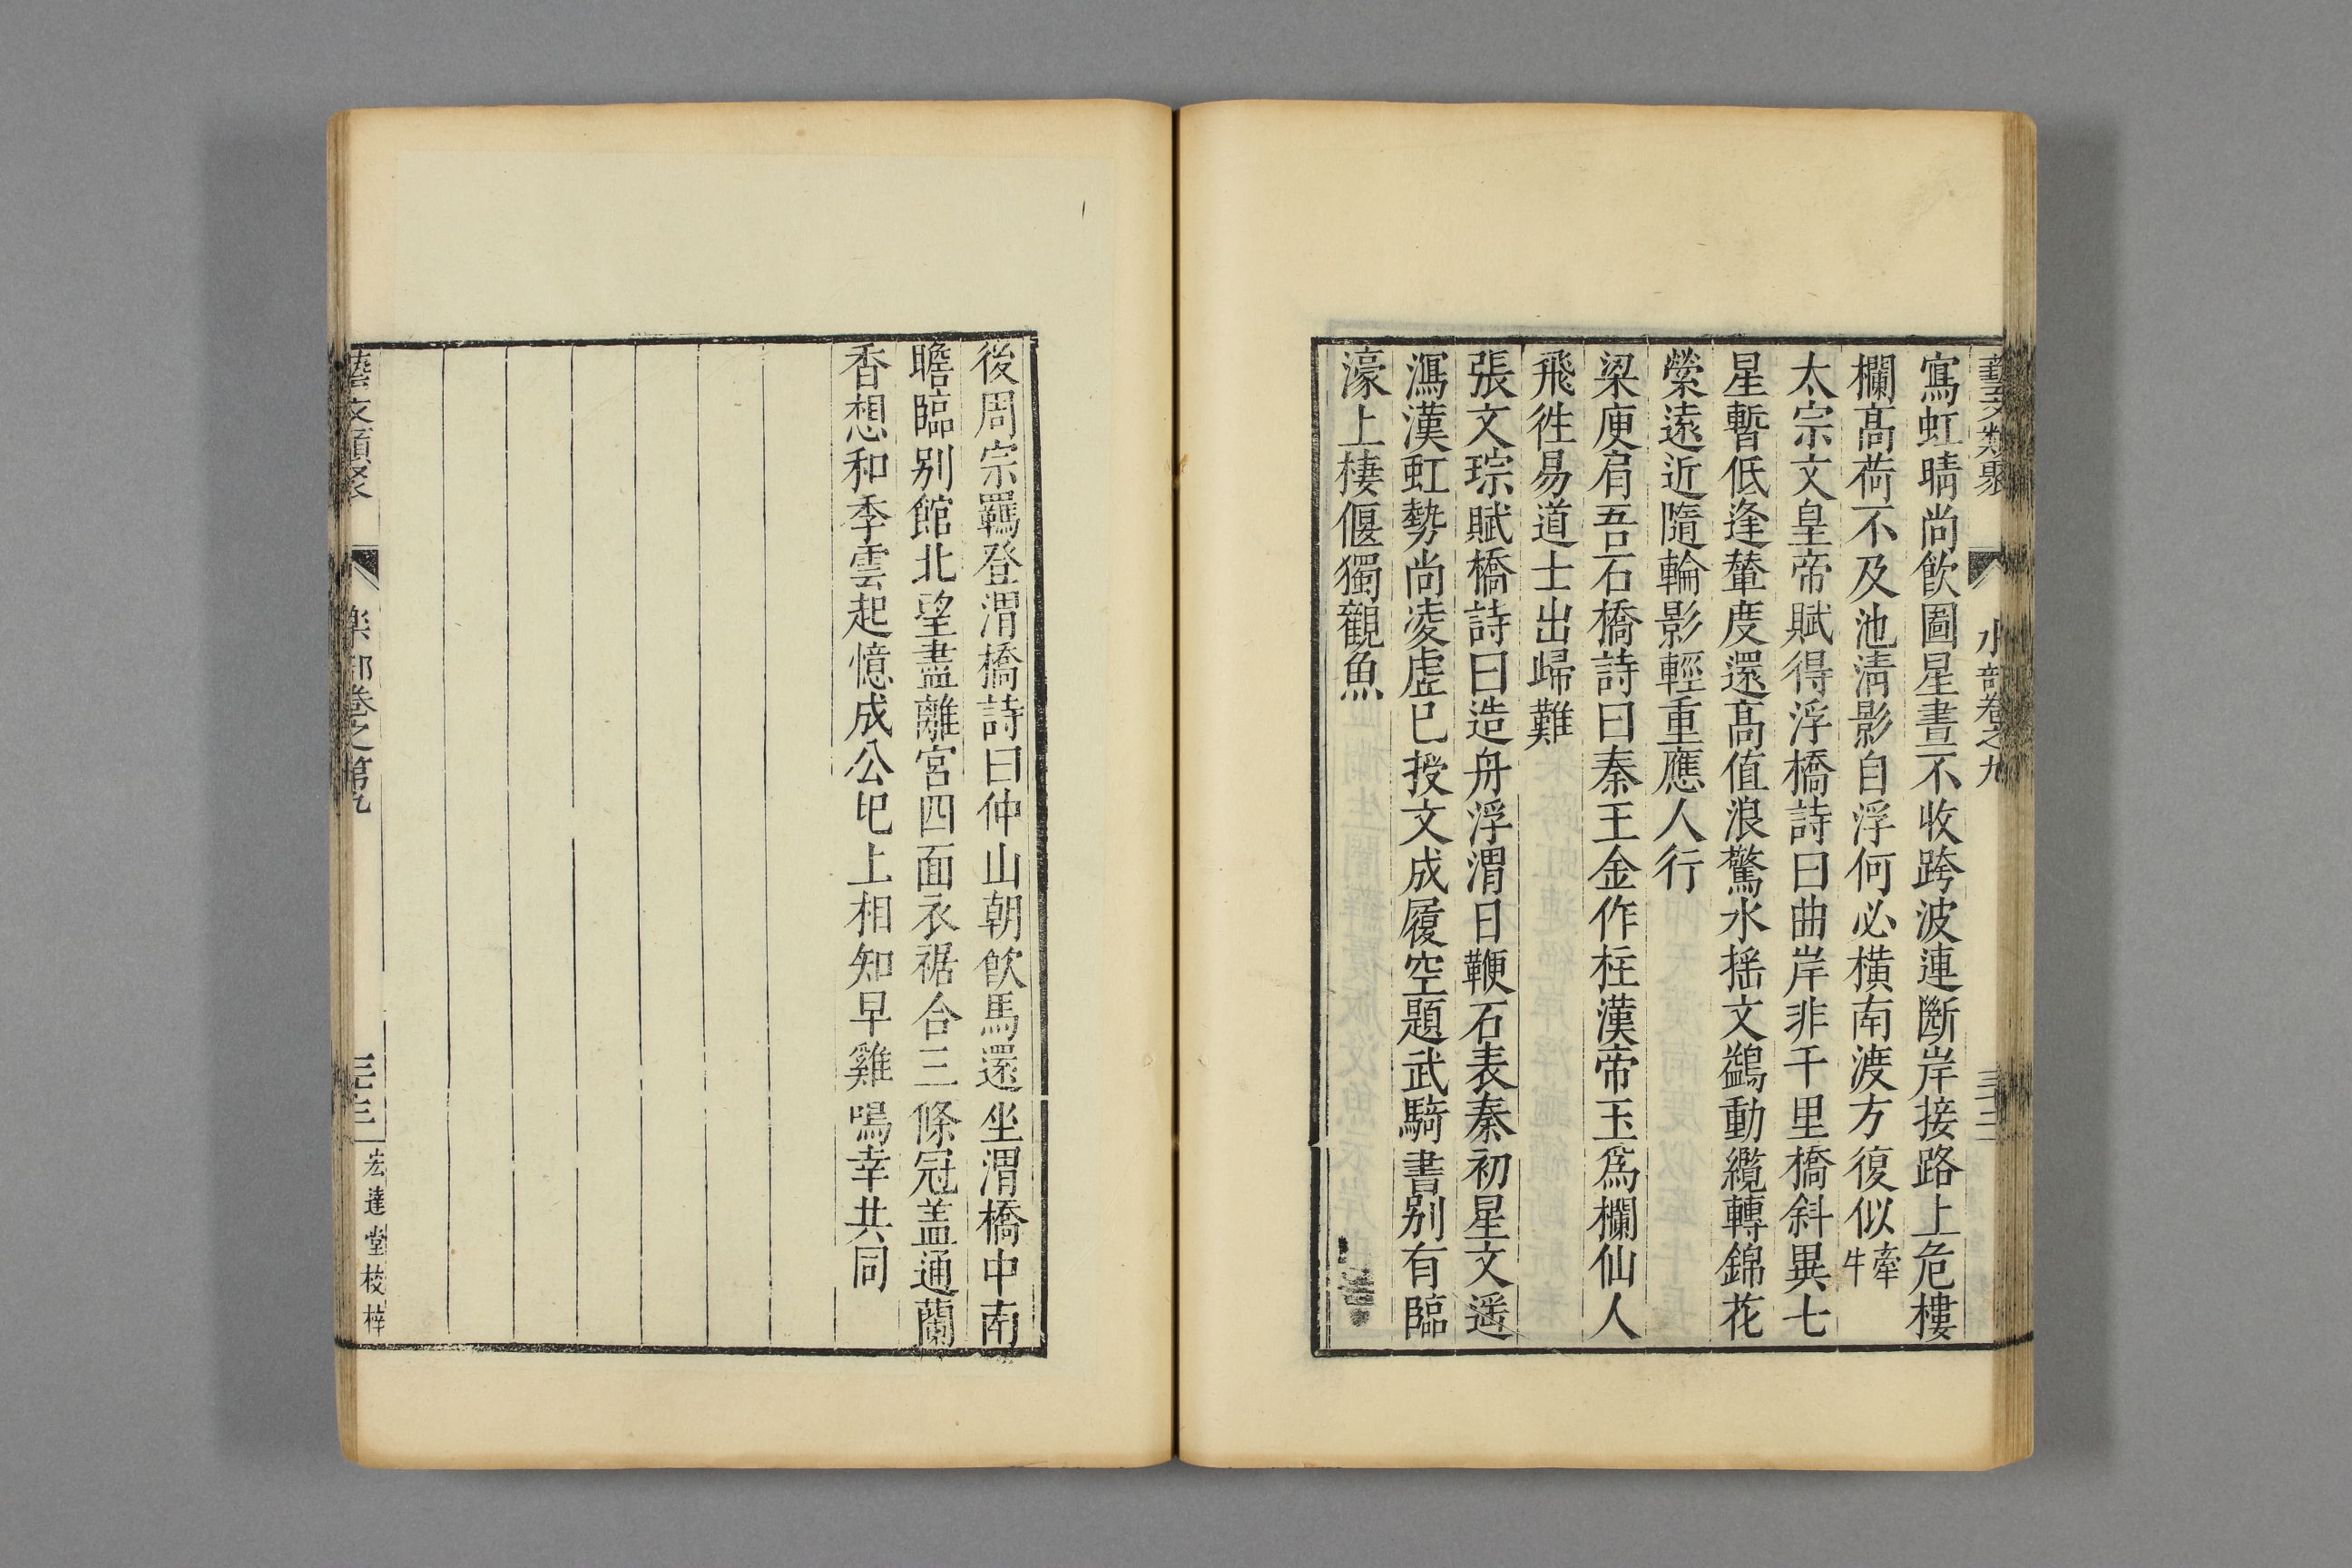 藝文類聚 水部卷之九 三十二
寫虹晴尚飲圖星晝不收跨波連斷岸接路上危樓
欄高荷不及池清影自浮何必橫南渡方復似牽牛
太宗文皇帝賦得浮橋詩曰曲岸非千里橋斜異七
星暫低逢輦度還高值浪驚水搖文鷁動纜轉錦花
縈遠近隨輪影輕重應人行
梁庾肩吾石橋詩曰秦王金作柱漢帝玉為欄仙人
飛徃易道士出歸難
張文琮賦橋詩曰造舟浮渭日鞭石表秦初星文遥
瀉漢虹勢尚凌虛已授文成履空題武騎書别有臨
濠上棲偃獨觀魚
後周宗羈登渭橋詩曰仲山朝飲馬還坐渭橋中南
瞻臨别館北望盡離宮四面衣裾合三條冠盖通蘭
香想和季雲起憶成公圯上相知早雞鳴幸共同
藝文類聚 樂部卷之第九 三十三 宏達堂校梓